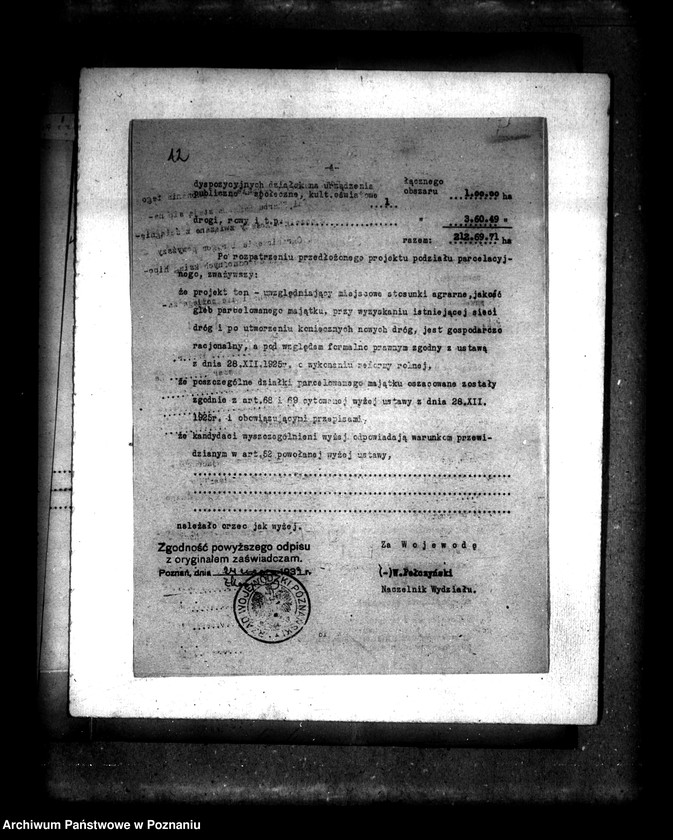 12
-4-
dyspozycyjnych działek na urządzenia łącznego
publiczno - społeczne, kult.oświatowe obszaru 1.00.00 ha
...1
drogi, rowy i t.p. " 3.60.49 "
razem: 212.69.71 ha
Po rozpatrzeniu przedłożonego projektu podziału parcelacyj-
nego, zważywszy:
że projekt ten - uwzględniający miejscowe stosunki agrarne, jakość
gleb parcelowanego majątku, przy wyzyskaniu istniejącej sieci
dróg i po utworzeniu koniecznych nowych dróg, jest gospodarczo
racjonalny, a pod względem formalno prawnym zgodny z ustawą
z dnia 28.XII.1925r. o wykonaniu reformy rolnej,
że poszczególne działki parcelowanego majątku oszacowane zostały
zgodnie z art.68 i 69 cytowanej wyżej ustawy z dnia 28.XII.
1925r. i obowiązującymi przepisami,
że kandydaci wyszczególnieni wyżej odpowiadają warunkom przewi-
dzianym w art.52 powołanej wyżej ustawy,
należało orzec jak wyżej.
Zgodność powyższego odpisu
z oryginałem zaświadczam.
Poznań, dnia 24 1939 r.
Za Wojewodę
(-)W.Pełczyński
Naczelnik Wydziału.
URZĄD WOJEWÓDZKI POZNAŃSKI
Archiwum Państwowe w Poznaniu